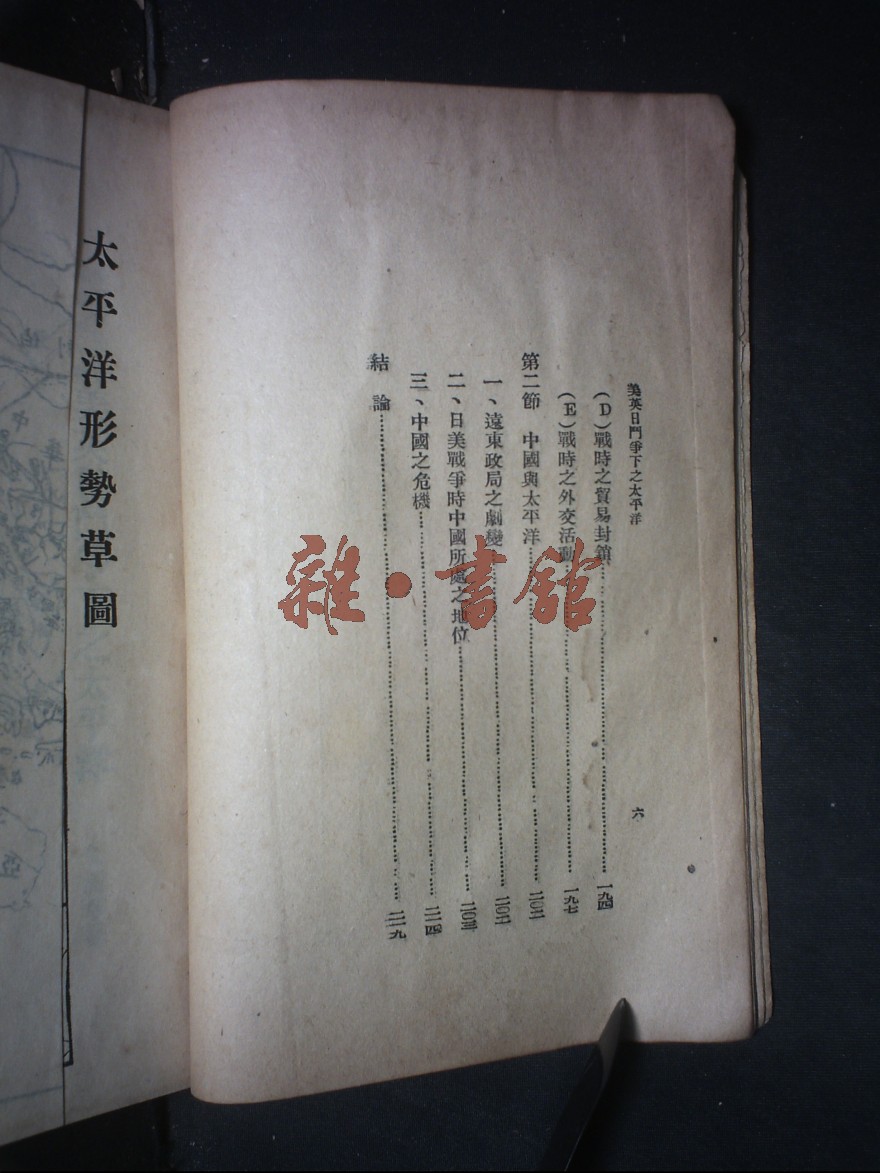 美英日鬥爭下之太平洋
六
(D)戰時之貿易封鎖……一九四
(E)戰時之外交活動……一九七
第二節 中國與太平洋……二〇二
一、遠東政局之劇變……二〇二
二、日美戰爭時中國所處之地位……二〇三
三、中國之危機……二一四
結論……二一九
太平洋形勢草圖
雜·書館